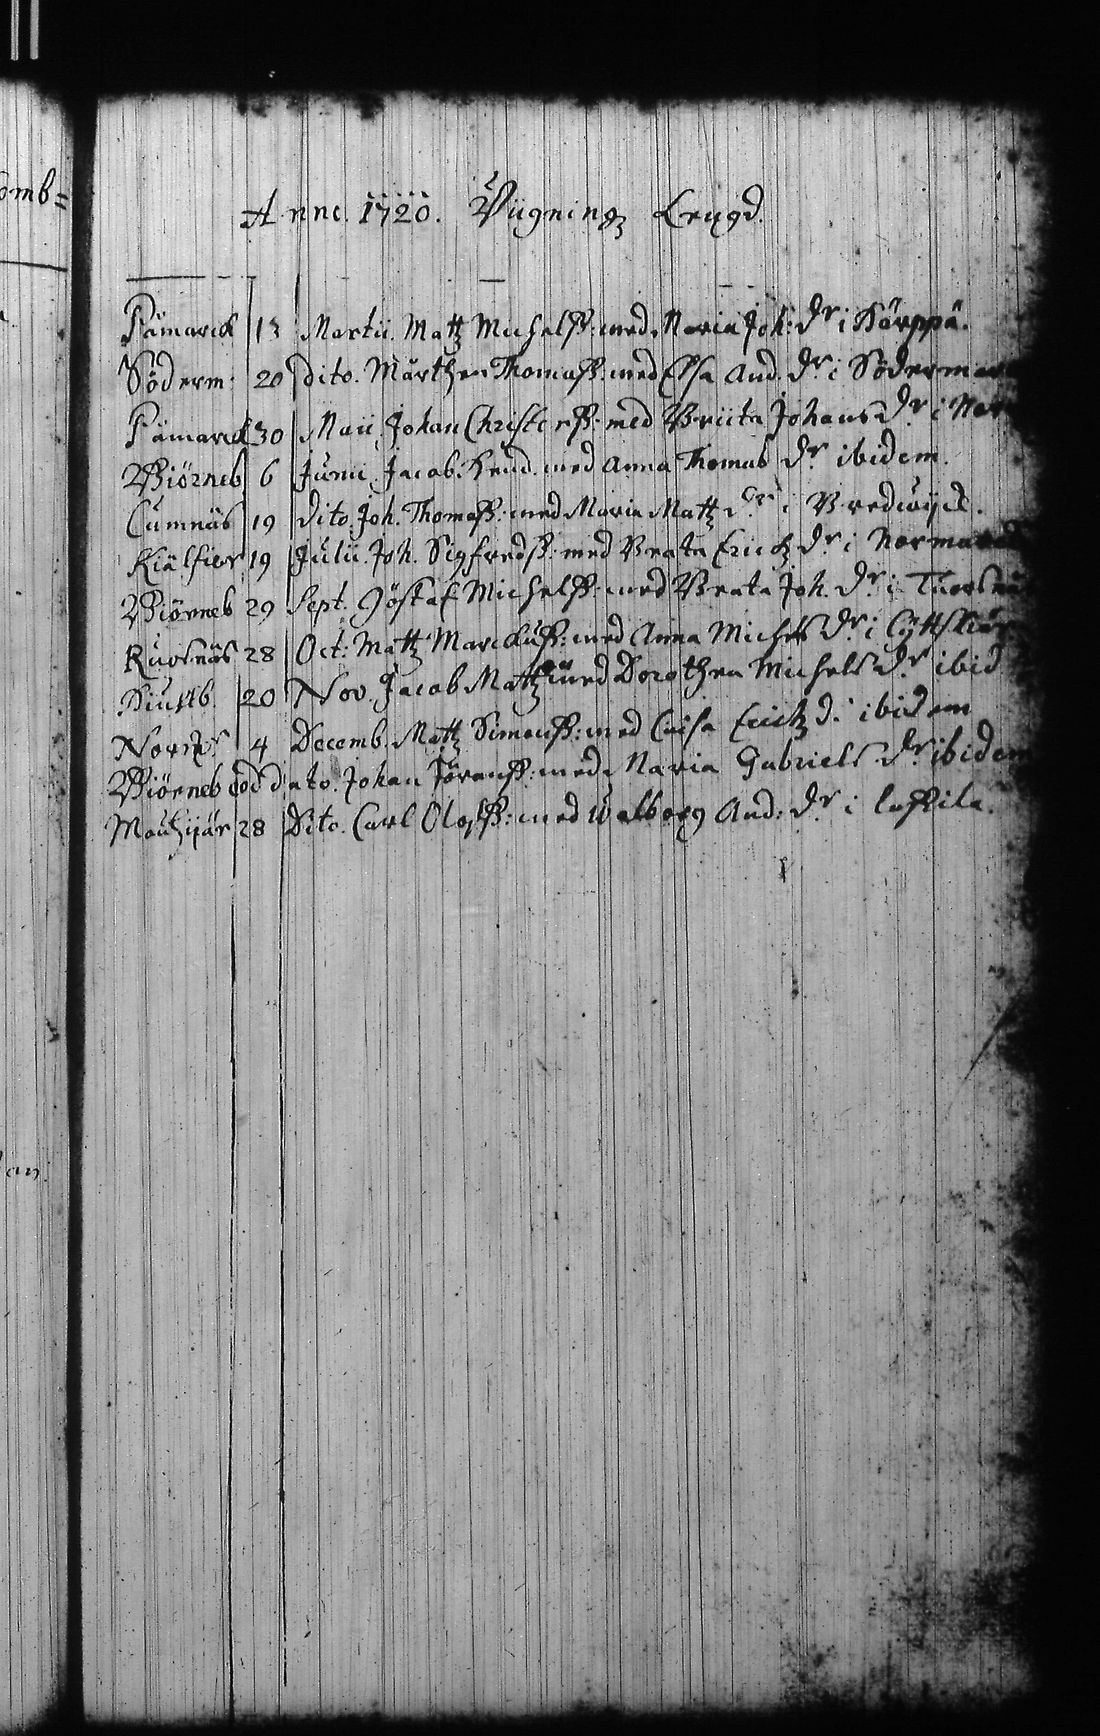 omb=
Anno. 1720. Viigning Lengd.
Påmarck 13 Martii. Matz Michelss: med Maria Joh: dr i Härppä.
Söderm: 20 dito. Mårthen Thomass: med Elsa And. dr i Södermar
Påmarck 30 Maii. Johan Christerss: med Briita Johans dr i Nor
Biörneb 6 Junii. Jacob. Hend. med Anna Thomas dr ibidem.
Cumnäs 19 dito. Joh. Thomass: med Maria Matz dr i Bredwijck.
Kiälfier 19 Julii. Joh. Sigfredss: med Beata Erichz dr i Normarck
Biörneb 29 Sept. Göstaf Michelss: med Beata Joh. dr i Tuorsnä
Ruosnäs 28 Oct: Matz Marckuss: med Anna Michels dr i Cyttskiär
Siustb. 20 Nov. Jacob Matz med Dorothea Michels dr ibid
Norrks 4 Decemb. Matz Simonss: med Caisa Erichz d. ibidem
Biörneb eod dato. Johan Jöranss: med Maria Gabriels dr ibidem
28 Dito. Carl Olofss: med Walborg And: dr i lassila.
an